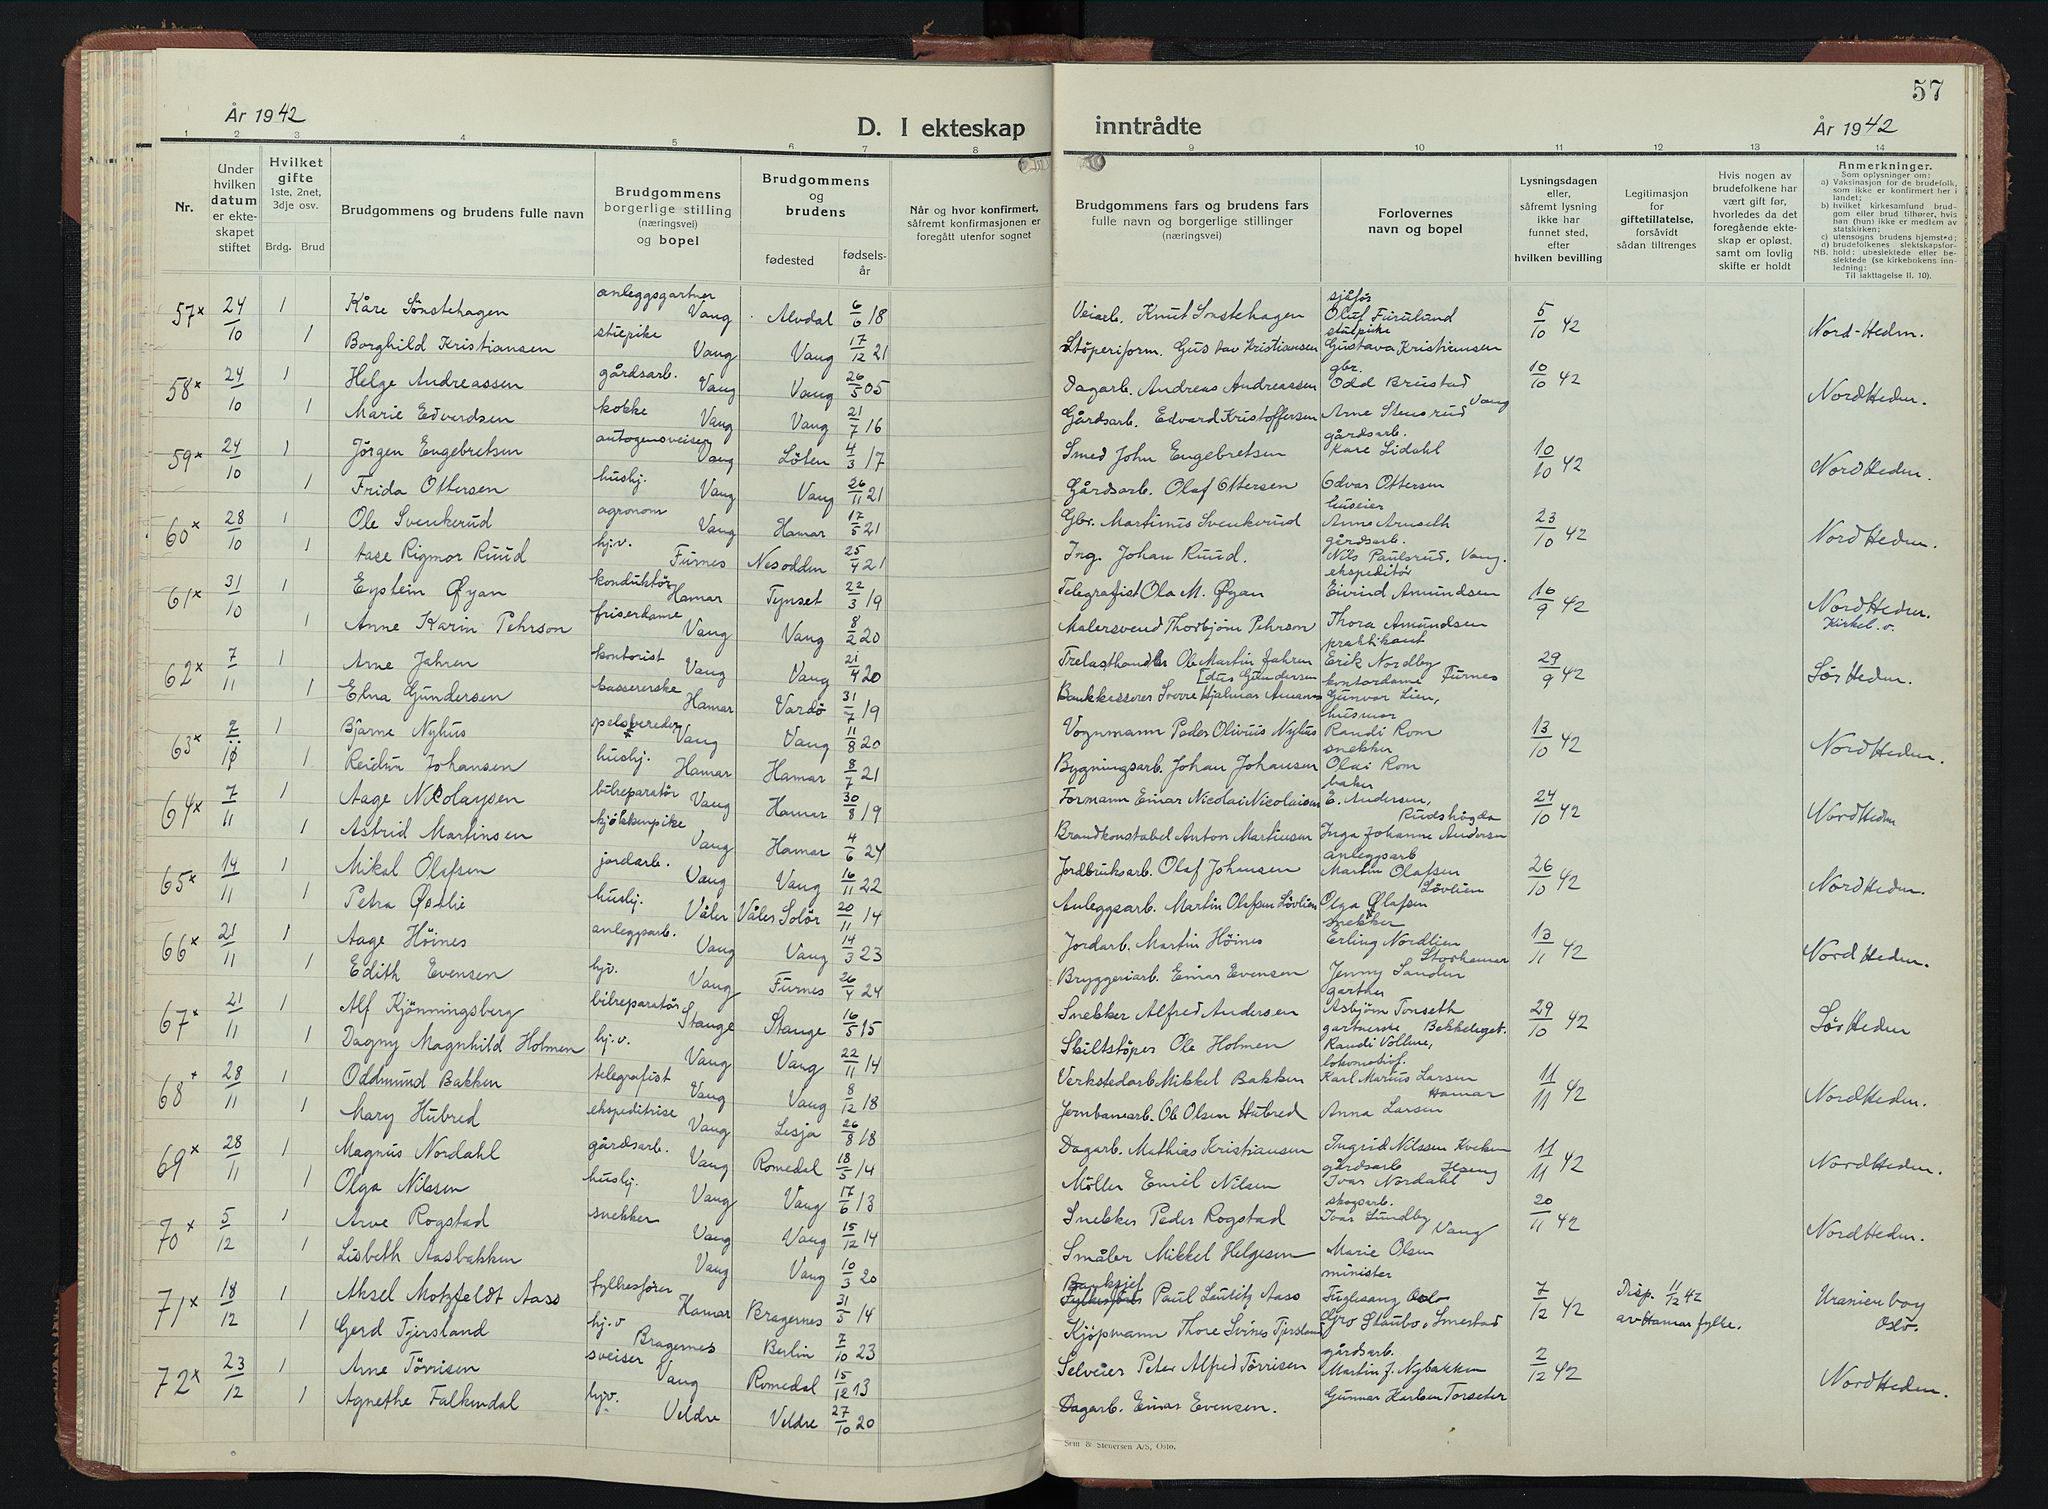 57
År 1942
D. I ekteskap inntrådte
År 1942
1 2 3 4 5 6 7 8 9 10 11 12 13 14
Nr.
Under hvilken datum er ekteskapet stiftet
Hvilket gifte 1ste, 2net, 3dje osv.
Brdg. Brud
Brudgommens og brudens fulle navn
Brudgommens borgerlige stilling (næringsvei) og bopel
Brudgommens og brudens
fødested
fødselsår
Når og hvor konfirmert, såfremt konfirmasjonen er foregått utenfor sognet
Brudgommens fars og brudens fars fulle navn og borgerlige stillinger (næringsvei)
Forlovernes navn og bopel
Lysningsdagen eller, såfremt lysning ikke har funnet sted, efter hvilken bevilling
Legitimasjon for giftetillatelse, forsåvidt sådan tiltrenges
Hvis nogen av brudefolkene har vært gift før, hvorledes da det foregående ekteskap er opløst, samt om lovlig skifte er holdt
Anmerkninger.
Som oplysninger om:
a) Vaksinasjon for de brudefolk, som ikke er konfirmert her i landet;
b) hvilket kirkesamfund brudgom eller brud tilhører, hvis han (hun) ikke er medlem av statskirken;
c) utensogns brudens hjemsted;
d) brudefolkenes slektskapsforhold: ubeslektede eller beslektede (se kirkebokens innledning:
NB.
Til iakttagelse II. 10).
57x 24/10 1 Kåre Sönstehagen anleggsgartner Vang Alvdal 6/6 18 Veiarb. Knut Sönstehagen sjåför Oluf Furulund 5/10 42 Nord-Hedm.
1 Borghild Kristiansen stuepike Vang Vang 17/12 21 Støperiform. Gustav Kristiansen stuepike Gustava Kristiansen
58x 24/10 1 Helge Andreassen gårdsarb. Vang Vang 26/5 05 Dagarb. Andreas Andreassen gbr. Odd Brustad Vang 10/10 42 Nord Hedm.
1 Marie Edvardsen kokke Vang Vang 21/7 16 Gårdsarb. Edvard Kristoffersen Arne Stensrud
59x 24/10 1 Jörgen Engebretsen autogensveiser Vang Löten 4/3 17 Smed John Engebretsen gårdsarb. Kåre Lidahl 10/10 42 Nord Hedm.
1 Frida Ottersen hushj. Vang Vang 26/11 21 Gårdsarb. Olaf Ottersen Edvar Ottersen
60x 28/10 1 Ole Svenkerud agronom Vang Hamar 17/5 21 Gbr. Martinus Svenkerud huseier Anne Arneseth 23/10 42 Nord Hedm.
1 Aase Rigmor Ruud hj.v. Furnes Nesodden 25/4 21 Ing. Johan Ruud. gårdsarb. Nils Paulsrud, Vang.
61x 31/10 1 Eystein Øyan konduktör Hamar Tynset 22/3 19 Telegrafist Ola M. Øyan ekspeditör Eivind Amundsen 16/9 42 Nord Hedm.
1 Anne Karin Pehrson friserdame Vang Vang 8/2 20 Malersvend Thorbjörn Pehrson Thora Amundsen
62x 7/11 1 Arne Jahren kontorist Vang Vang 21/4 20 Trelasthandler Ole Martin Jahren praktikant Erik Nordby Furnes 29/9 42 Sör Hedm.
1 Elna Gundersen kassererske Hamar Vardö 31/7 19 Bankkasserer Sverre Hjalmar [dus Gundersen kontordame Gunvor Lien,
63x 7/11 1 Bjarne Nyhus pelsbereder Vang Vang 11/8 20 Vognmann Peder Olivius Nyhus husmor Randi Rom 13/10 42 Nord Hedm.
1 Reidun Johansen hushj. Hamar Hamar 8/7 21 Bygningsarb. Johan Johansen snekker Olai Rom
64x 7/11 1 Aage Nicolaysen bilreparatör Vang Hamar 30/8 19 Formann Einar Nicolai Nicolaisen baker E. Andersen, Rudshögda 24/10 42 Nord Hedm
1 Astrid Martinsen kjökkenpike Vang Hamar 4/6 24 Brandkonstabel Anton Martinsen Inga Johanne Andersen
65x 14/11 1 Mikal Olafsen jordarb. Vang Vang 16/11 22 Jordbruksarb. Olaf Johansen anleggsarb Martin Olafsen Lövlien 26/10 42 Nord Hedm.
1 Petra Østlie hushj. Våler Våler Solör 20/11 14 Anleggsarb. Martin Olafsen Lövlien Olga Olafsen
66x 21/11 1 Aage Höines anleggsarb. Vang Vang 14/3 23 Jordarb. Martin Höines snekker Erling Nordlien Storhamar 13/11 42 Nord Hedm.
1 Edith Evensen hjv. Vang Furnes 26/4 24 Bryggeriarb. Einar Evensen Jenny Sanden
67x 21/11 1 Alf Kjönningsberg bilreparatör Stange Stange 16/5 15 Snekker Alfred Andersen gartner Asbjörn Tonseth Bekkelaget. 29/10 42 Sör Hedm
1 Dagny Magnhild Holmen hj.v. Vang Vang 22/11 14 Skiltstöper Ole Holmen gartnerske Randi Vollne,
68x 28/11 1 Oddmund Bakken telegrafist Vang Vang 8/12 18 Verkstedarb Mikkel Bakken lokomotivf. Karl Marius Larsen Hamar 11/11 42 Nord Hedm.
1 Mary Hubred ekspeditrise Vang Lesja 26/8 18 Jernbanearb. Ole Olsen Hubred Anna Larsen
69x 28/11 1 Magnus Nordahl gårdsarb. Vang Romedal 18/5 14 Dagarb. Mathias Kristiansen Ingrid Nilssen 11/11 42 Nord Hedm.
1 Olga Nilssen hushj. Vang Vang 17/6 13 Möller Emil Nilsen gårdsarb Ivar Nordahl
70x 5/12 1 Arve Rogstad snekker Vang Vang 15/12 14 Snekker Peder Rogstad skogsarb. Ivar Lundby Vang 20/11 42 Nord Hedm.
1 Lisbeth Aasbakken Vang Vang 10/3 20 Småler Mikkel Helgesen Marie Olsen
71x 18/12 1 Aksel Motzfeldt Aass fylkesförer Hamar Bragernes 31/5 14 Banksjef Paul Lauritz Aass minister Fuglesang Oslo 7/12 42 Disp. 11/12 42 av Hamar fylke. Uranienborg Oslo.
1 Gerd Tjersland hj.v Bragernes Berlin 7/10 23 Kjöpmann Thore Svines Tjersland Gro Staubo, Smestad
72x 23/12 1 Arne Törrisen sveiser Vang Romedal 15/12 13 Selveier Peter Alfred Törrisen gårdsarb. Martin J. Nybakken 2/12 42 Nord Hedm.
1 Agnethe Falkendal hjv. Veldre Veldre 27/10 20 Dagarb. Einar Evensen. Gunnar Karlsen Torseter
Sem & Stenersen A/S, Oslo.